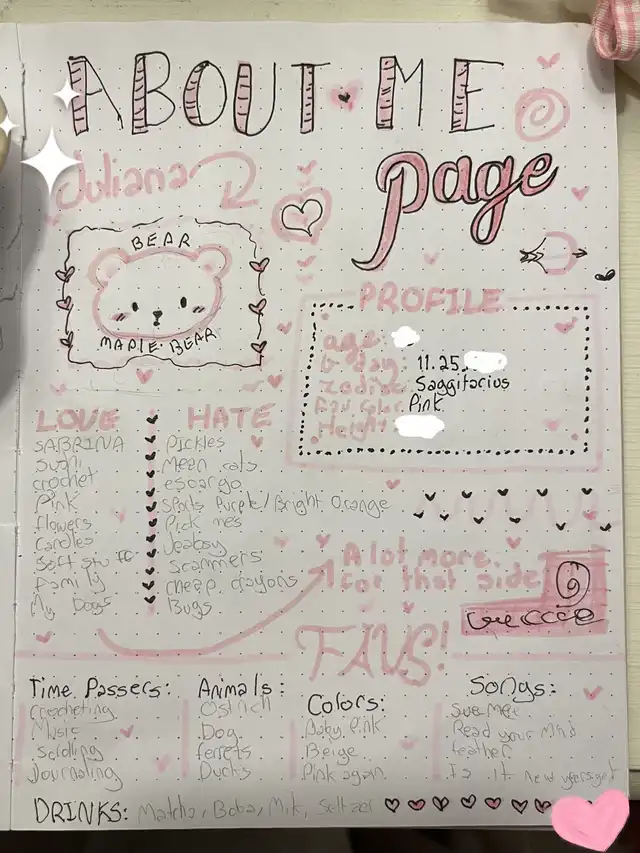 ABOUT ME
page
Juliana
BEAR
MAPLE BEAR
PROFILE
age:
B-day: 11.25.
Zodiac: Saggitarius
Fav color: Pink
Height:
LOVE
SABRINA
Sushi
crochet
Pink
flowers
Candles
Soft stuff
Family
My Dogs
HATE
Pickles
Mean cats.
escargo
Sports Purple/Bright Orange
Pick mes
Jealosy
Scammers
Cheep crayons
Bugs
A lot more.
for that side
FAVS!
Time Passers:
Crocheting
Music
Scrolling
Journaling
Animals:
Ostrich
Dog
ferrets
Ducks
Colors:
Baby Pink
Beige
Pink again
Songs:
Read your Mind
feather
Is it new years yet
DRINKS: Matcha, Boba, Milk, Seltzer